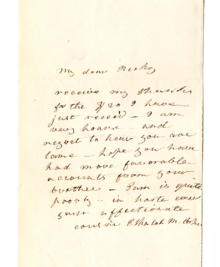 My dear
receive my thanks
for the $20 I have
just recd – I am
very hoarse – and
regret to hear you are
lame – hope you have
had more favorable
accounts from your
brother – Sam is quite
poorly – in haste ever
your affectionate
cousin